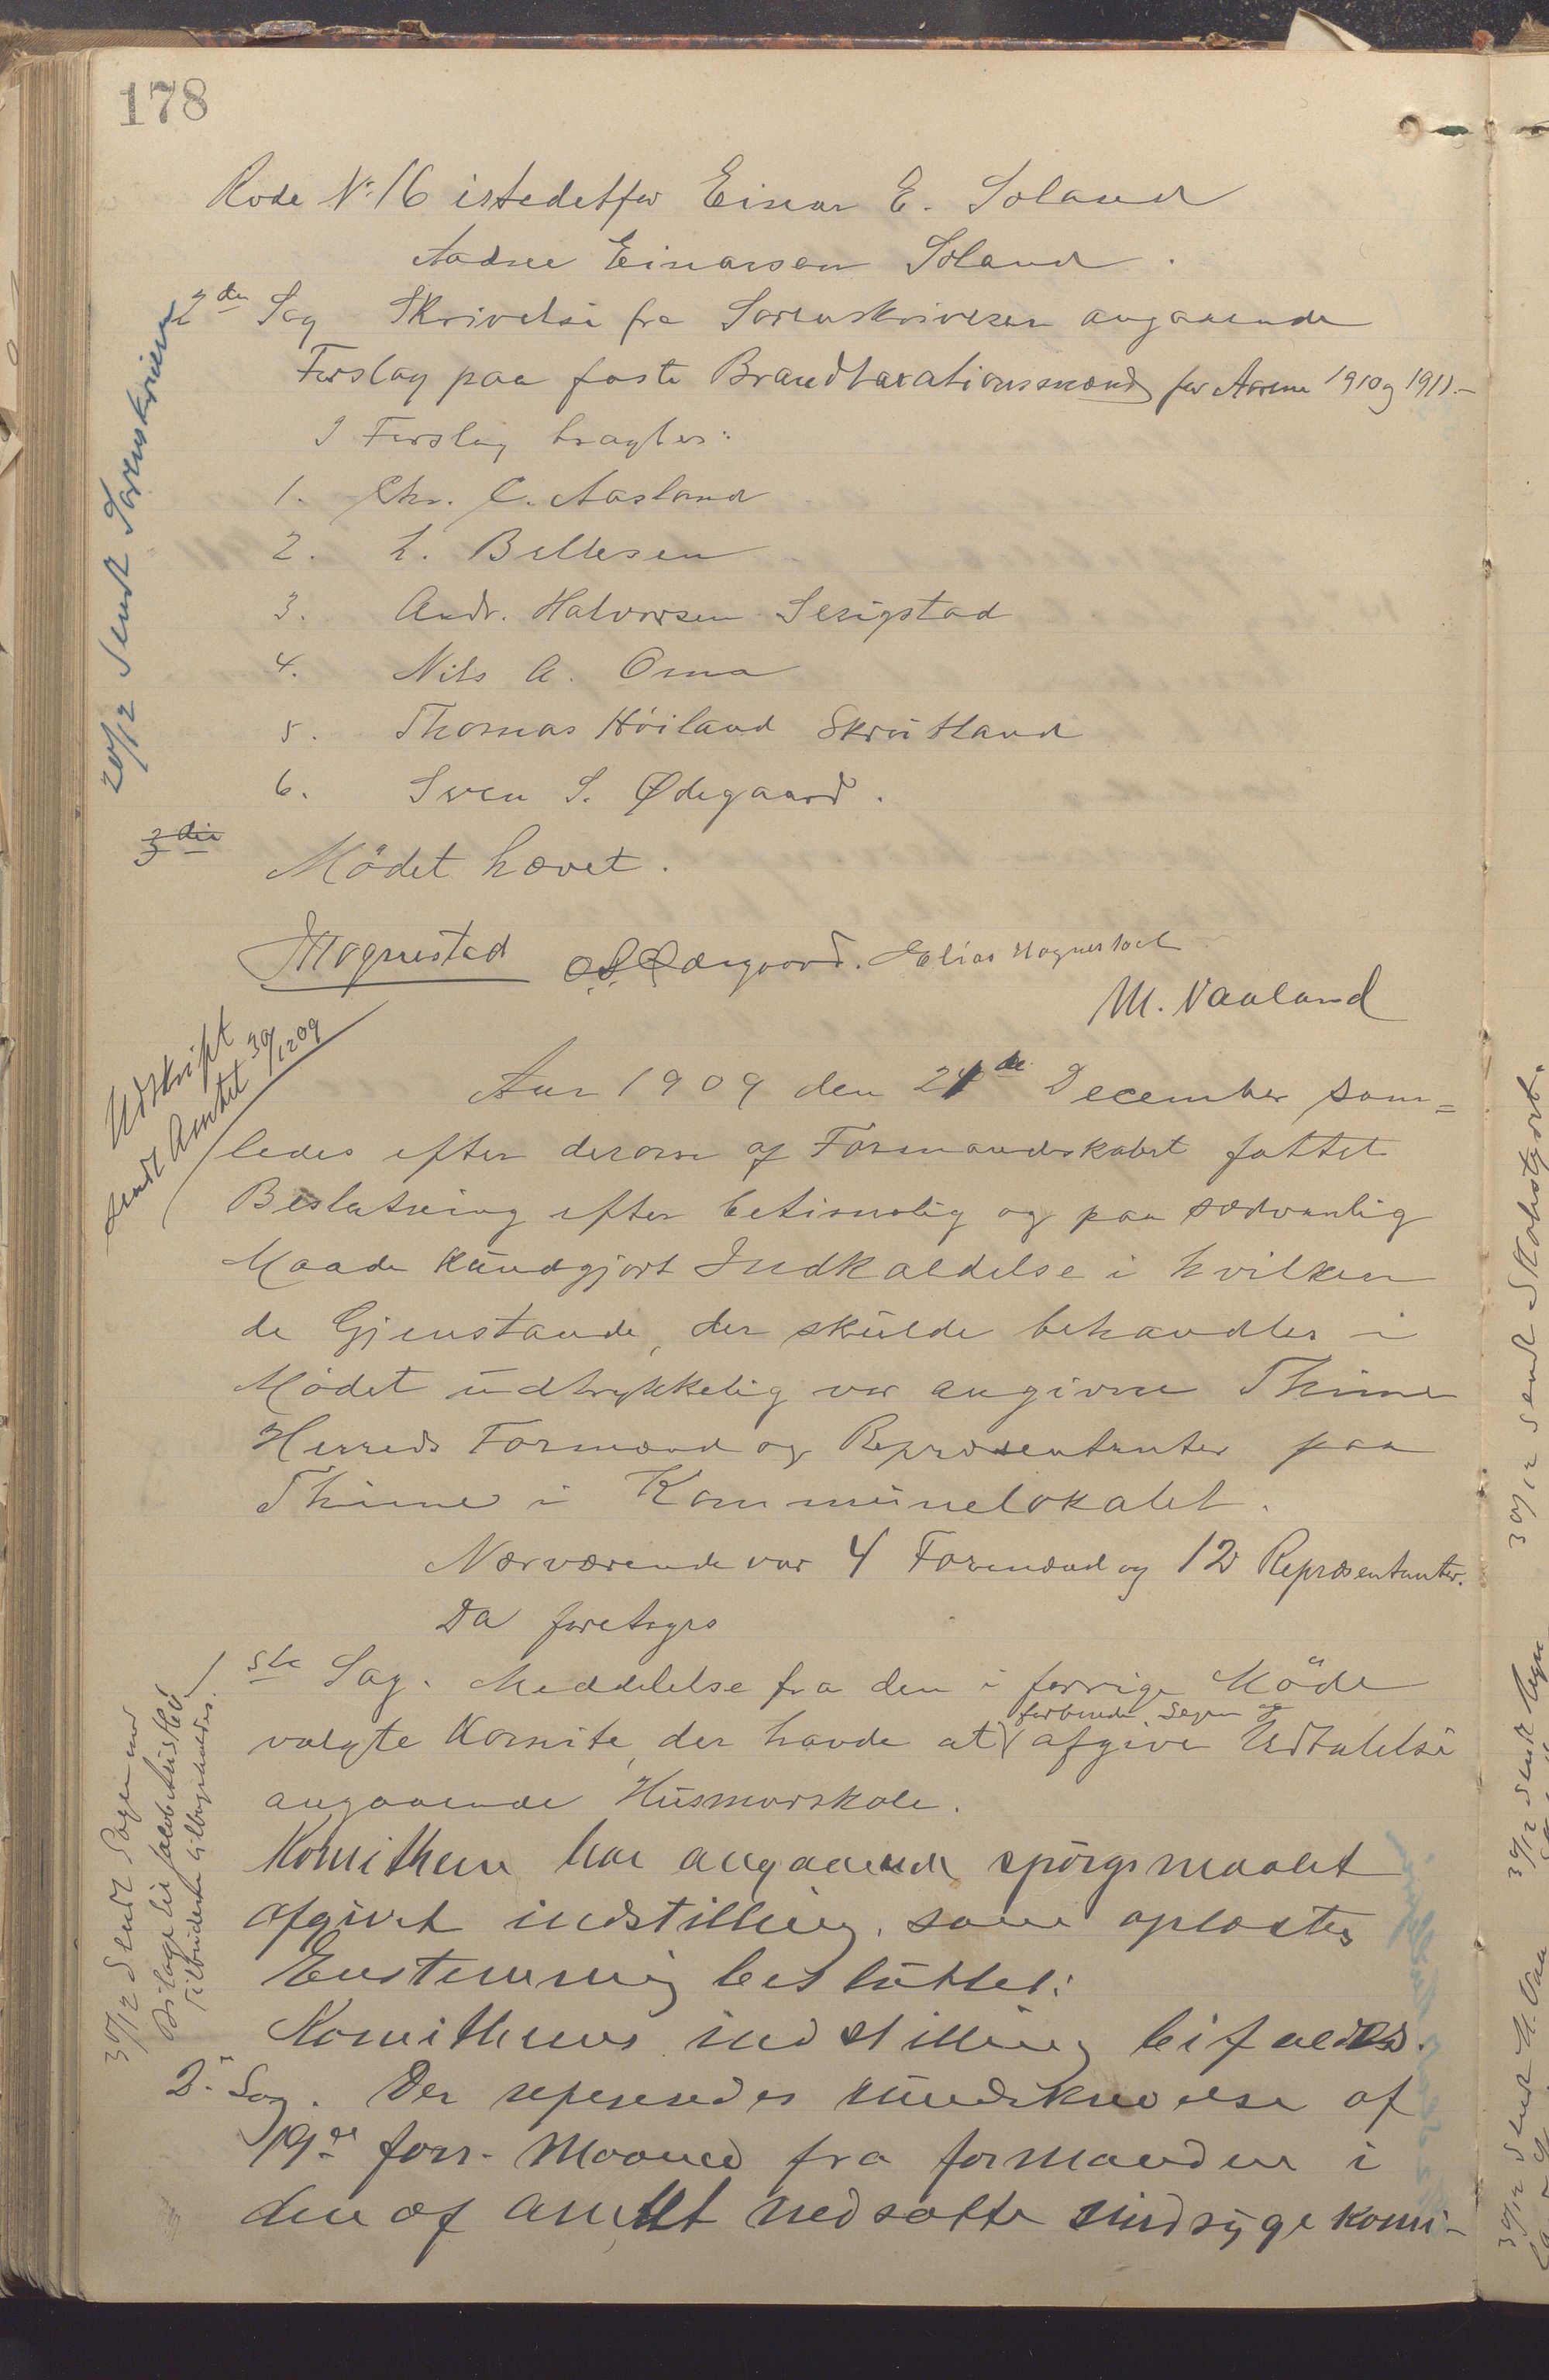 178
Rode No 16 istedetfor Einar E. Soland
Aadne Einarsen Soland.
2den Sag Skrivelse fra Sorenskriveren angaaende
Forslag paa faste Brandtaxationsmænd for Aarene 1910 og 1911.-
I Forslag bragtes:
1. Chr. C. Aasland
2. L. Bellesen
3. Andr. Halvorsen Serigstad
4. Nils A. Oma
5. Thomas Höiland Skrütland
6. Sven S. Ødegaard.
20/12 Sendt Sorenskriveren
3die
Mödet hævet.
Mognestad Ødegaard. Elias Hognestad
M. Vaaland
Udskrift
sendt Amtet 30/12 09
Aar 1909 den 21de December sam=
ledes efter derom af Formandskabet fattet
Beslutning efter betimelig og paa sædvanlig
Maade kündgjort Indkaldelse i hvilken
de Gjenstande, der skülde behandles i
Mödet üdtrykkelig var angivne Thime
Herreds Formænd og Repræsentanter paa
Thime i Kommünelokalet.
Nærværende var 4 Formænd og 12 Repræsentanter.
Da foretoges
1ste Sag. Meddelelse fra den i forrige Möde
forberede Sagen og
valgte Komite, der havde at afgive Udtalelse
angaaende Hüsmorskole.
Komitheen har angaaende spörgsmaalet
afgivet indstilling, som oplæstes
Enstemmig beslüttet:
Komitheens indstilling bifaldes.
30/12 Sendt Sagen med
Bilage til
Tilbudene tilbageholdes.
2. Sag. Der refereredes ründskrivelse af
19de forr. Maaned fra formanden i
den af amtet nedsatte sindsÿgekomi-
30/12 sendt Skolestyret.
30/12 sendt
30/12 sendt